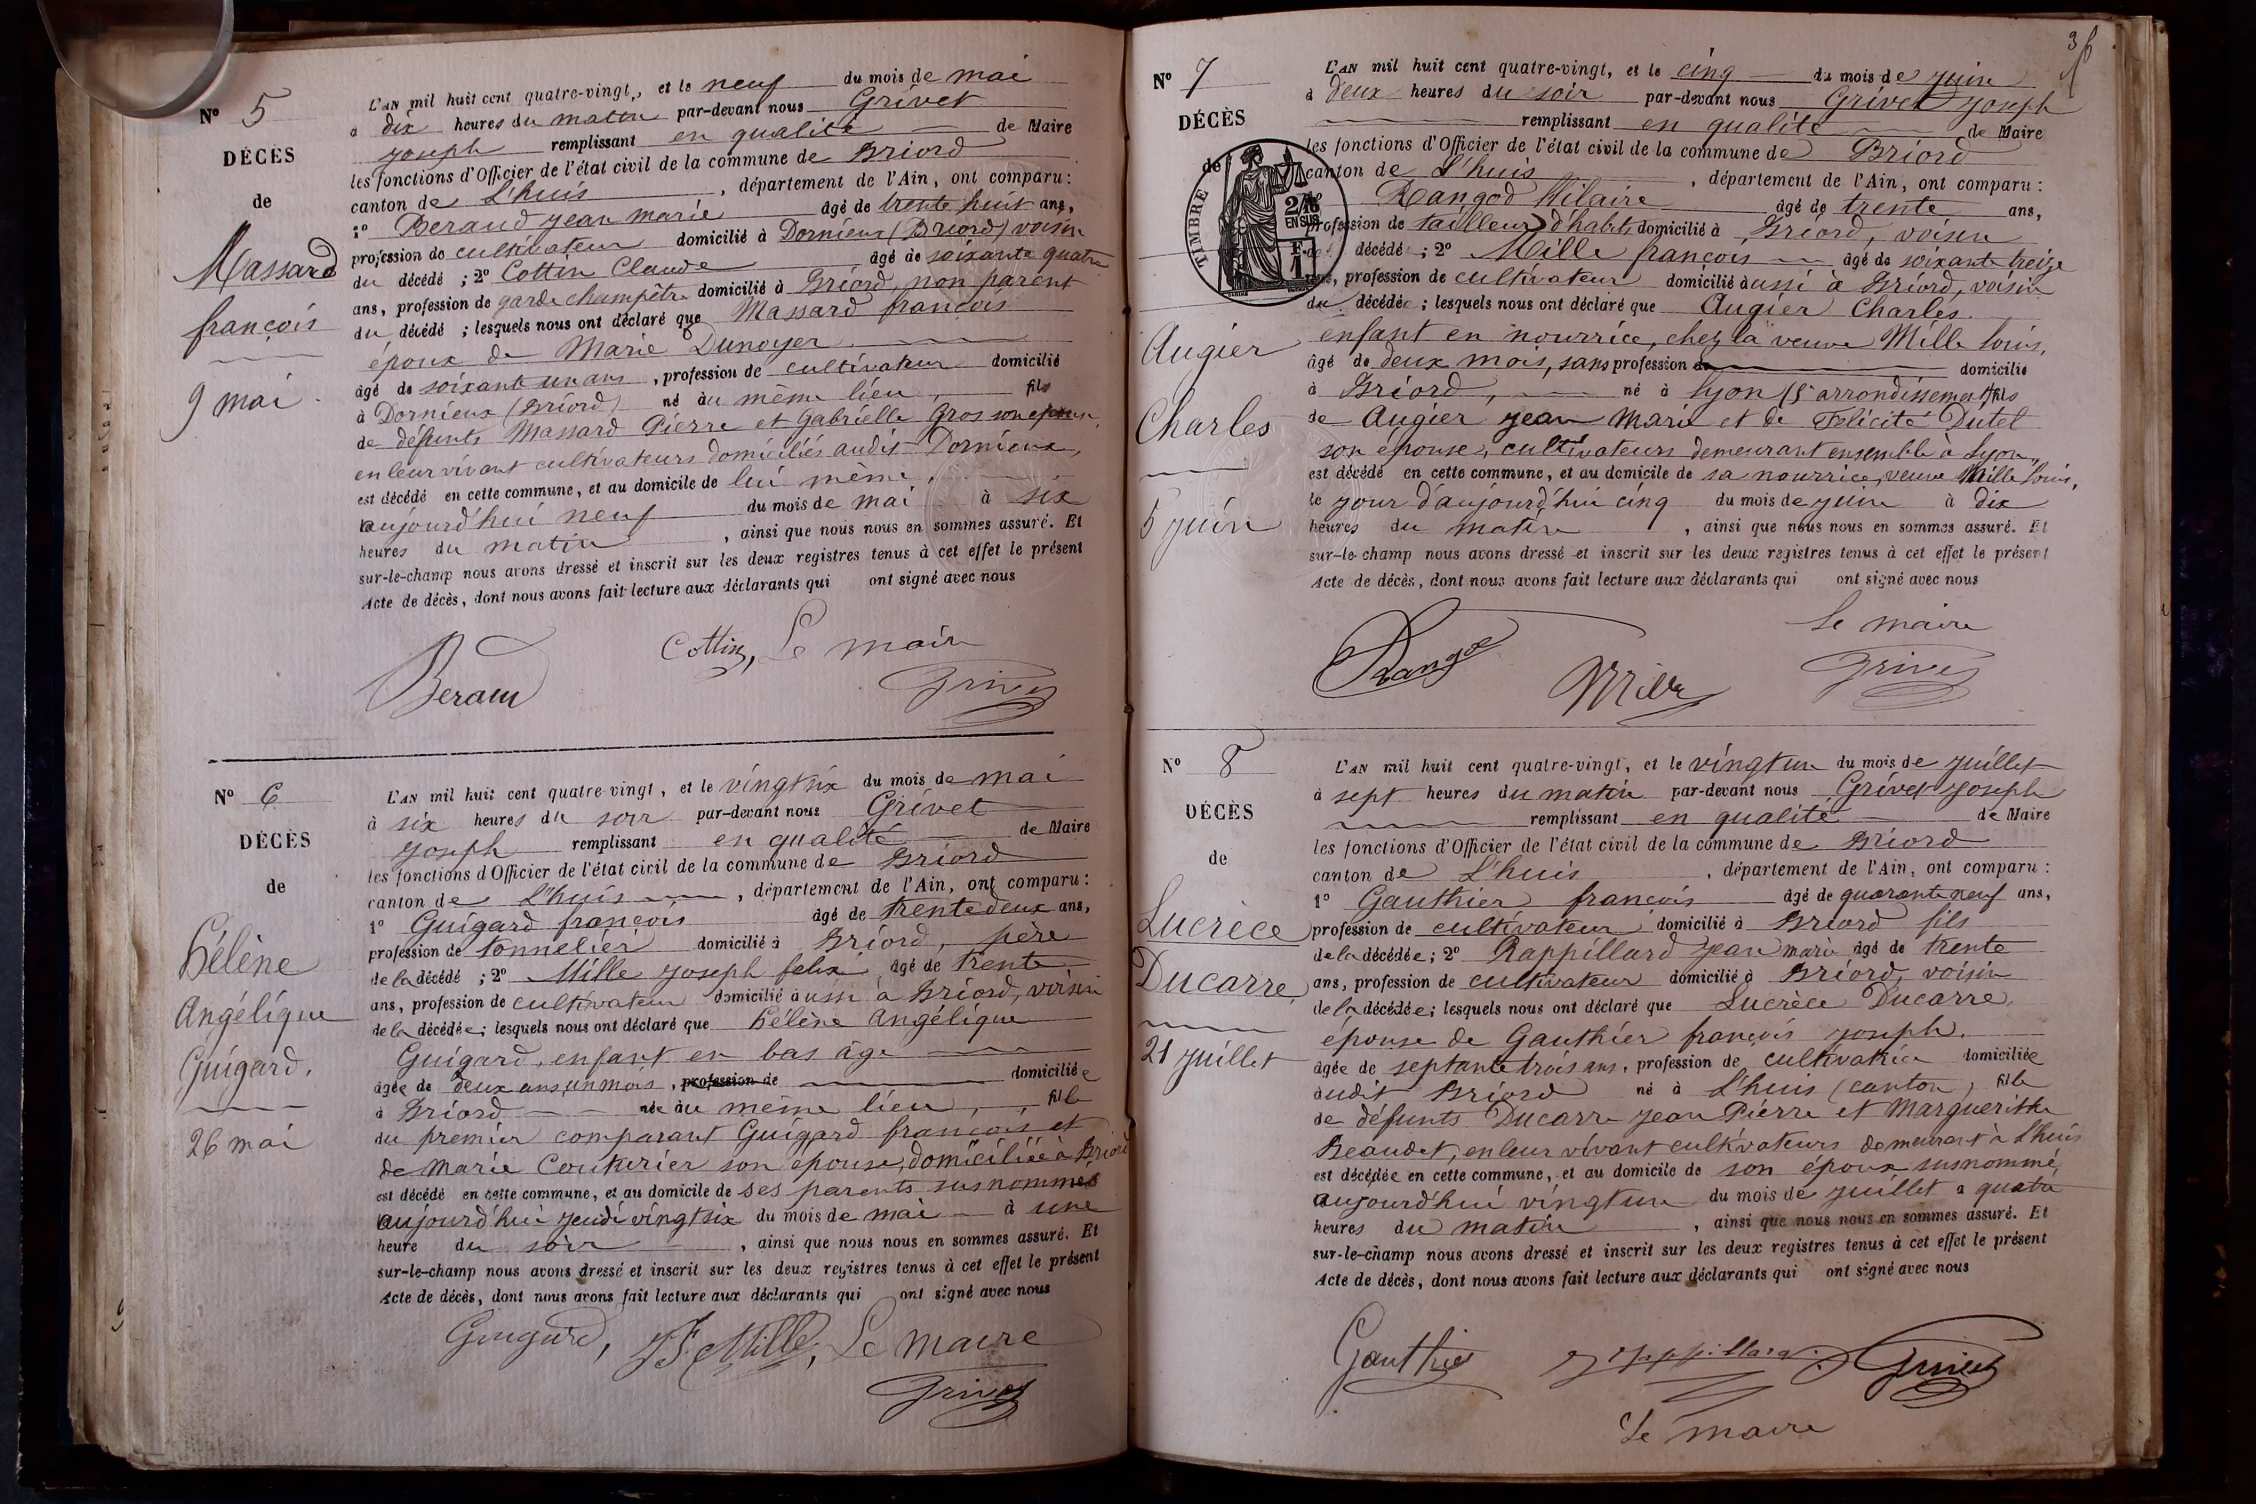 N° 5
DÉCÈS
de
Massard
françois
9 mai
L'AN mil huit cent quatre-vingt, et le neuf du mois de mai
à dix heures du matin par-devant nous Grivet
joseph remplissant en qualité de Maire
les fonctions d'Officier de l'état civil de la commune de Briord
canton de L'huis, département de l'Ain, ont comparu :
1° Beraud jean marie âgé de trente huit ans,
profession de cultivateur domicilié à Dornieux (Briord) voisin
du décédé ; 2° Cottin Claude âgé de soixante quatre
ans, profession de garde champêtre domicilié à Briord, non parent
du décédé ; lesquels nous ont déclaré que Massard françois
époux de Marie Dunoyer
âgé de soixant un ans, profession de cultivateur domicilié
à Dornieux (Briord) né au même lieu, fils
de défunts Massard Pierre et Gabrielle Gros son épouse,
en leur vivant cultivateurs domiciliés audit Dornieux,
est décédé en cette commune, et au domicile de lui même,
aujourd'hui neuf du mois de mai à six
heures du matin, ainsi que nous nous en sommes assuré. Et
sur-le-champ nous avons dressé et inscrit sur les deux registres tenus à cet effet le présent
Acte de décès, dont nous avons fait lecture aux déclarants qui ont signé avec nous
Beraud Cottin, Le maire
Grivet
N° 6
DÉCÈS
de
hélène
Angélique
Guigard.
26 mai
L'AN mil huit cent quatre-vingt, et le vingt six du mois de mai
à six heures du soir par-devant nous Grivet
joseph remplissant en qualité de Maire
les fonctions d'Officier de l'état civil de la commune de Briord
canton de L'huis, département de l'Ain, ont comparu :
1° Guigard françois âgé de trente deux ans,
profession de tonnelier domicilié à Briord, père
de la décédé ; 2° Mille joseph felix âgé de trente
ans, profession de cultivateur domicilié aussi à Briord, voisin
de la décédée ; lesquels nous ont déclaré que hélène Angélique
Guigard, enfant en bas âge
âgée de deux ans, un mois, profession de domiciliée
à Briord née au même lieu, fille
du premier comparant Guigard françois et
de Marie Couturier son épouse, domiciliée à Briord
est décédé en cette commune, et au domicile de ses parents susnommés
aujourd'hui jeudi vingt six du mois de mai à une
heure du soir, ainsi que nous nous en sommes assuré. Et
sur-le-champ nous avons dressé et inscrit sur les deux registres tenus à cet effet le présent
Acte de décès, dont nous avons fait lecture aux déclarants qui ont signé avec nous
Guigard, JF Mille, Le maire
Grivet
36
N° 7
DÉCÈS
de
TIMBRE
2/10
EN SUS
F.
1
Augier
Charles
5 juin
L'AN mil huit cent quatre-vingt, et le cinq du mois de juin
à deux heures du soir par-devant nous Grivet joseph
remplissant en qualité de Maire
les fonctions d'Officier de l'état civil de la commune de Briord
canton de L'huis, département de l'Ain, ont comparu :
1° Rangod Hilaire âgé de trente ans,
profession de tailleur d'habits domicilié à Briord, voisin
du décédé ; 2° Mille françois âgé de soixante treize
ans, profession de cultivateur domicilié aussi à Briord, voisin
du décédé ; lesquels nous ont déclaré que Augier Charles
enfant en nourrice, chez la veuve Mille louis,
âgé de deux mois, sans profession de domicilié
à Briord, né à lyon (5e arrondissement) fils
de Augier jean Marie et de Félicité Dutel
son épouse, cultivateurs demeurant ensemble à Lyon,
est décédé en cette commune, et au domicile de sa nourrice, veuve Mille louis,
le jour d'aujourd'hui cinq du mois de juin à dix
heures du matin, ainsi que nous nous en sommes assuré. Et
sur-le-champ nous avons dressé et inscrit sur les deux registres tenus à cet effet le présent
Acte de décès, dont nous avons fait lecture aux déclarants qui ont signé avec nous
Le maire
Rangod Mille Grivet
N° 8
DÉCÈS
de
Lucrèce
Ducarre
21 juillet
L'AN mil huit cent quatre-vingt, et le vingt un du mois de juillet
à sept heures du matin par-devant nous Grivet joseph
remplissant en qualité de Maire
les fonctions d'Officier de l'état civil de la commune de Briord
canton de L'huis, département de l'Ain, ont comparu :
1° Gauthier françois âgé de quarante neuf ans,
profession de cultivateur domicilié à Briord fils
de la décédée ; 2° Rappillard jean marie âgé de trente
ans, profession de cultivateur domicilié à Briord, voisin
de la décédée ; lesquels nous ont déclaré que Lucrèce Ducarre,
épouse de Gauthier françois joseph,
âgée de septante trois ans, profession de cultivatrice domiciliée
audit Briord né à L'huis (canton) fille
de défunts Ducarre jean Pierre et Margueritte
Beaudet, en leur vivant cultivateurs demeurant à L'huis
est décédée en cette commune, et au domicile de son époux susnommé,
aujourd'hui vingt un du mois de juillet à quatre
heures du matin, ainsi que nous nous en sommes assuré. Et
sur-le-champ nous avons dressé et inscrit sur les deux registres tenus à cet effet le présent
Acte de décès, dont nous avons fait lecture aux déclarants qui ont signé avec nous
Gauthier Rappillard Grivet
Le maire